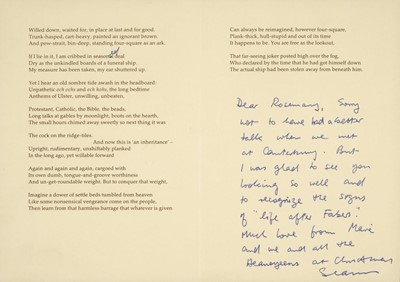 Willed down, waited for, in place at last and for good.
Trunk-hasped, cart-heavy, painted an ignorant brown.
And pew-strait, bin-deep, standing four-square as an ark.
If I lie in it, I am cribbed in seasoned deal
Dry as the unkindled boards of a funeral ship.
My measure has been taken, my ear shuttered up.
Yet I hear an old sombre tide awash in the headboard:
Unpathetic och ochs and och hohs, the long bedtime
Anthems of Ulster, unwilling, unbeaten,
Protestant, Catholic, the Bible, the beads,
Long talks at gables by moonlight, boots on the hearth,
The small hours chimed away sweetly so next thing it was
The cock on the ridge-tiles.
And now this is 'an inheritance' –
Upright, rudimentary, unshiftably planked
In the long ago, yet willable forward
Again and again and again, cargoed with
Its own dumb, tongue-and-groove worthiness
And un-get-roundable weight. But to conquer that weight,
Imagine a dower of settle beds tumbled from heaven
Like some nonsensical vengeance come on the people,
Then learn from that harmless barrage that whatever is given
Can always be reimagined, however four-square,
Plank-thick, hull-stupid and out of its time
It happens to be. You are free as the lookout,
That far-seeing joker posted high over the fog,
Who declared by the time that he had got himself down
The actual ship had been stolen away from beneath him.
Dear Rosemary, Sorry
not to have had a better
talk when we met
at Canterbury. But
I was glad to see you
looking so well and
to recognize the signs
of "life after Faber."
Much love from Marie
and me and all the
Heaneyeens at Christmas
Seamus